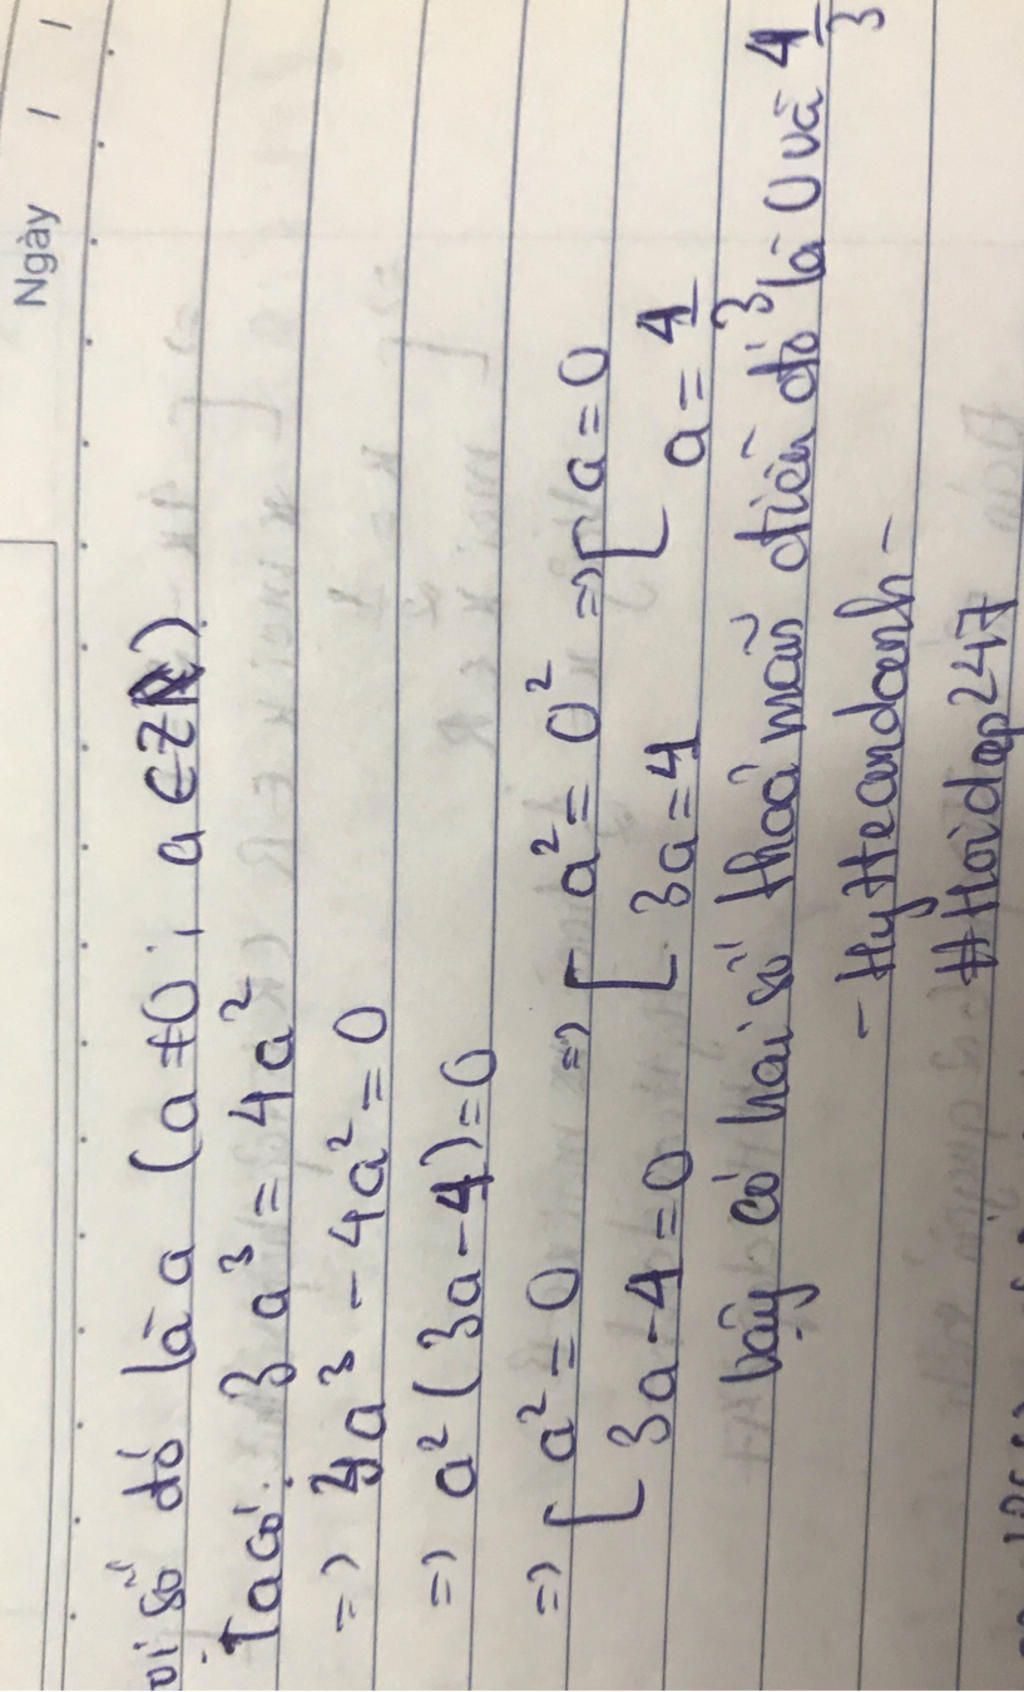 Ngày / /
số đó là a (a ≠ 0; a ∈ Z)
Ta có: 3a³ = 4a²
=> 3a³ - 4a² = 0
=> a² (3a - 4) = 0
=> [ a² = 0 => [ a² = 0² => [ a = 0
3a - 4 = 0 3a = 4 a = 4/3
Vậy có hai số thoả mãn điều đó là 0 và 4/3
- HyHeandanh -
#Hoidap247